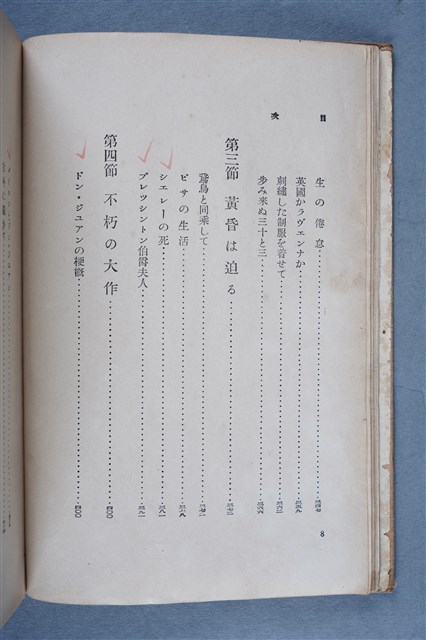 目次
生の倦怠……三四七
英國かラヴエンナか……三五九
刺繍した制服を着せて……三六二
歩み來ぬ三十と三……三六六
第三節 黄昏は迫る……三七二
鷲鳥と同乗して……三七二
ピサの生活……三六九
シエレーの死……三八一
ブレツシントン伯爵夫人……三九一
第四節 不朽の大作……四〇〇
ドン・ジユアンの梗概……四〇〇
8